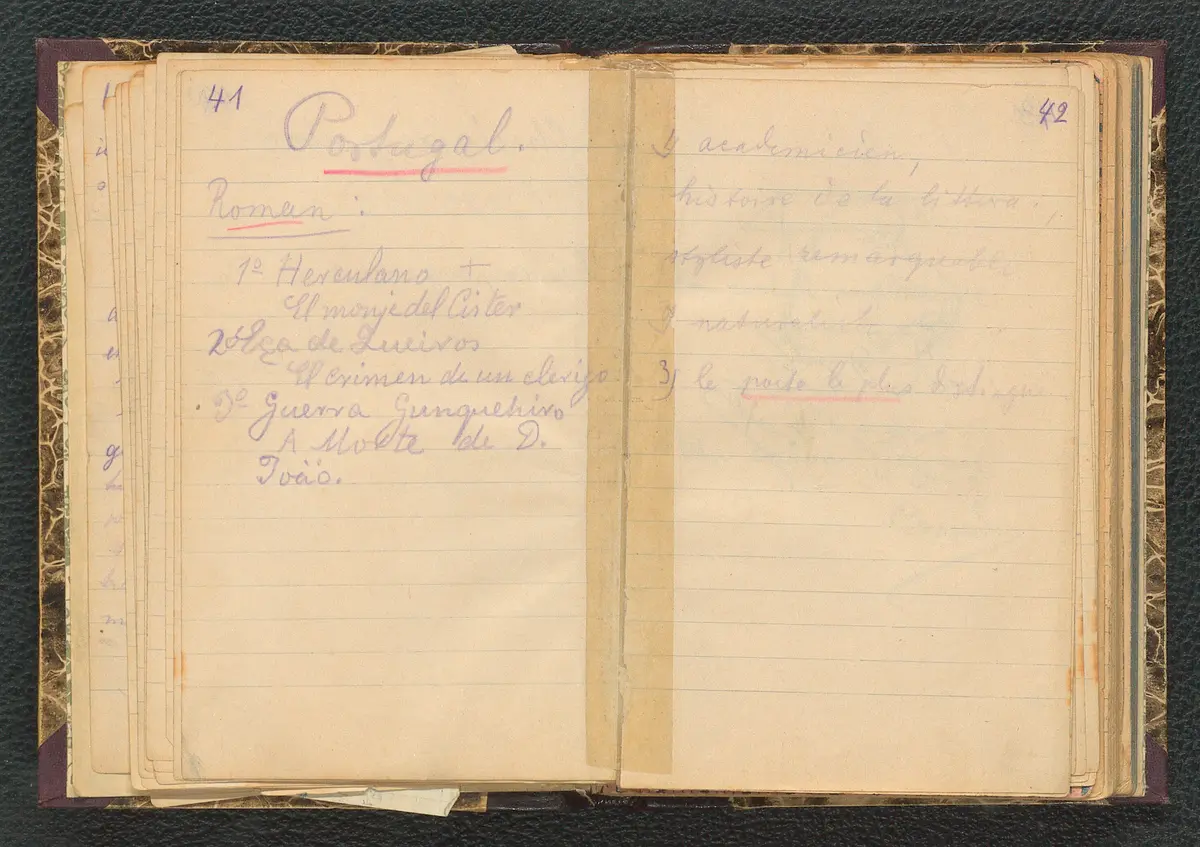 41
Portugal.
Roman :
1º Herculano +
El monje del Cister
2º Eça de Queiros
El crimen de un clerigo
3º Guerra Gunquehiro
A Morte de D.
João.
42
1) academicien,
histoire de la littera.,
styliste remarquable
2) naturaliste
3) le poete le plus distingue